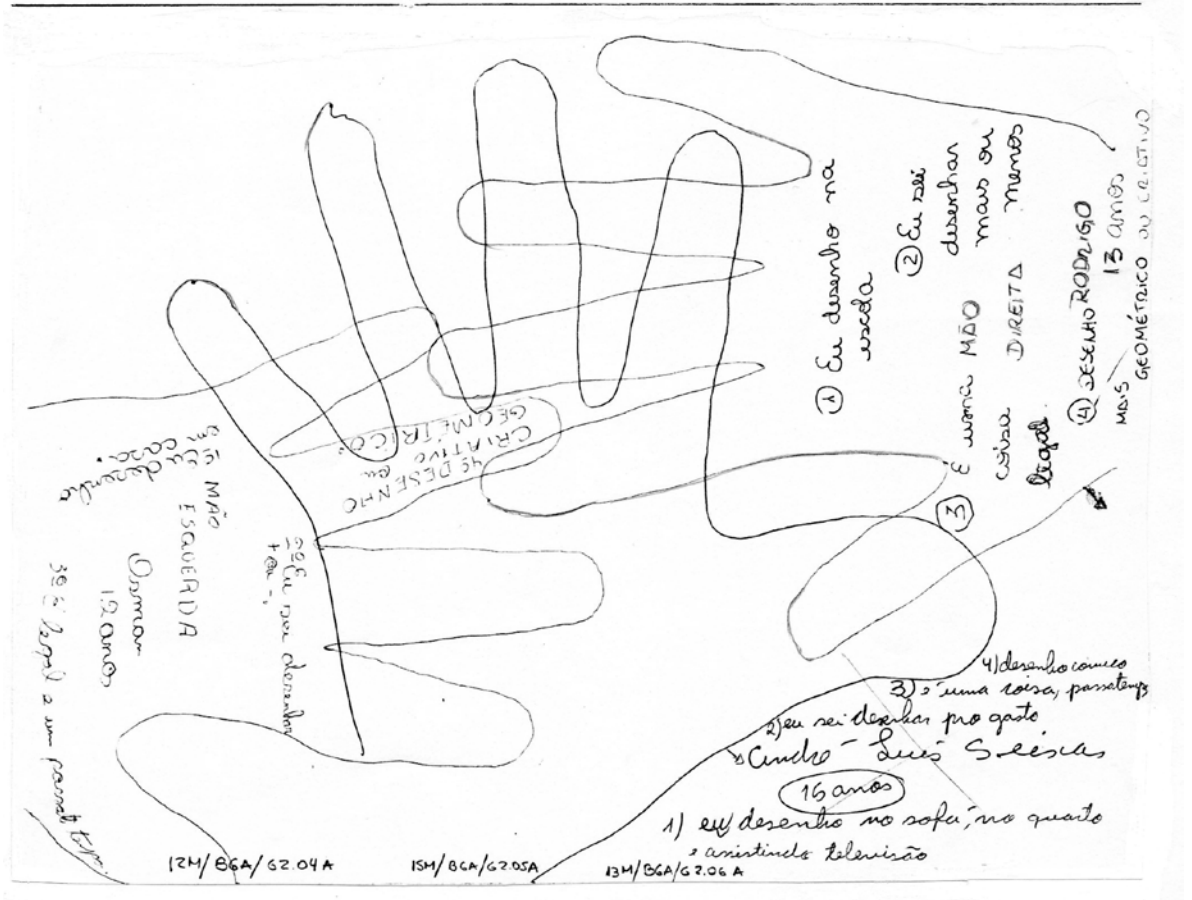 ① Eu desenho na
escola
② Eu sei
desenhar
mais ou
menos
③ É uma
coisa
legal.
MÃO
DIREITA
④ DESENHO RODRIGO
13 anos
MAIS GEOMÉTRICO OU CRIATIVO
4º DESENHO
CRIATIVO ou
GEOMÉTRICO.
1º Eu desenho
em casa.
MÃO
ESQUERDA
Osmar
12 anos
2º Eu sei desenhar
+ ou -.
3º É legal e um passatempo.
4) desenho cômico
3) é uma coisa, passatempo
2) eu sei desenhar pro gasto
André Luís Seixas
16 anos
1) eu desenho no sofa, no quarto
e assistindo televisão
12M/BGA/G2.04A
15M/BGA/G2.05A
13M/BGA/G2.06A